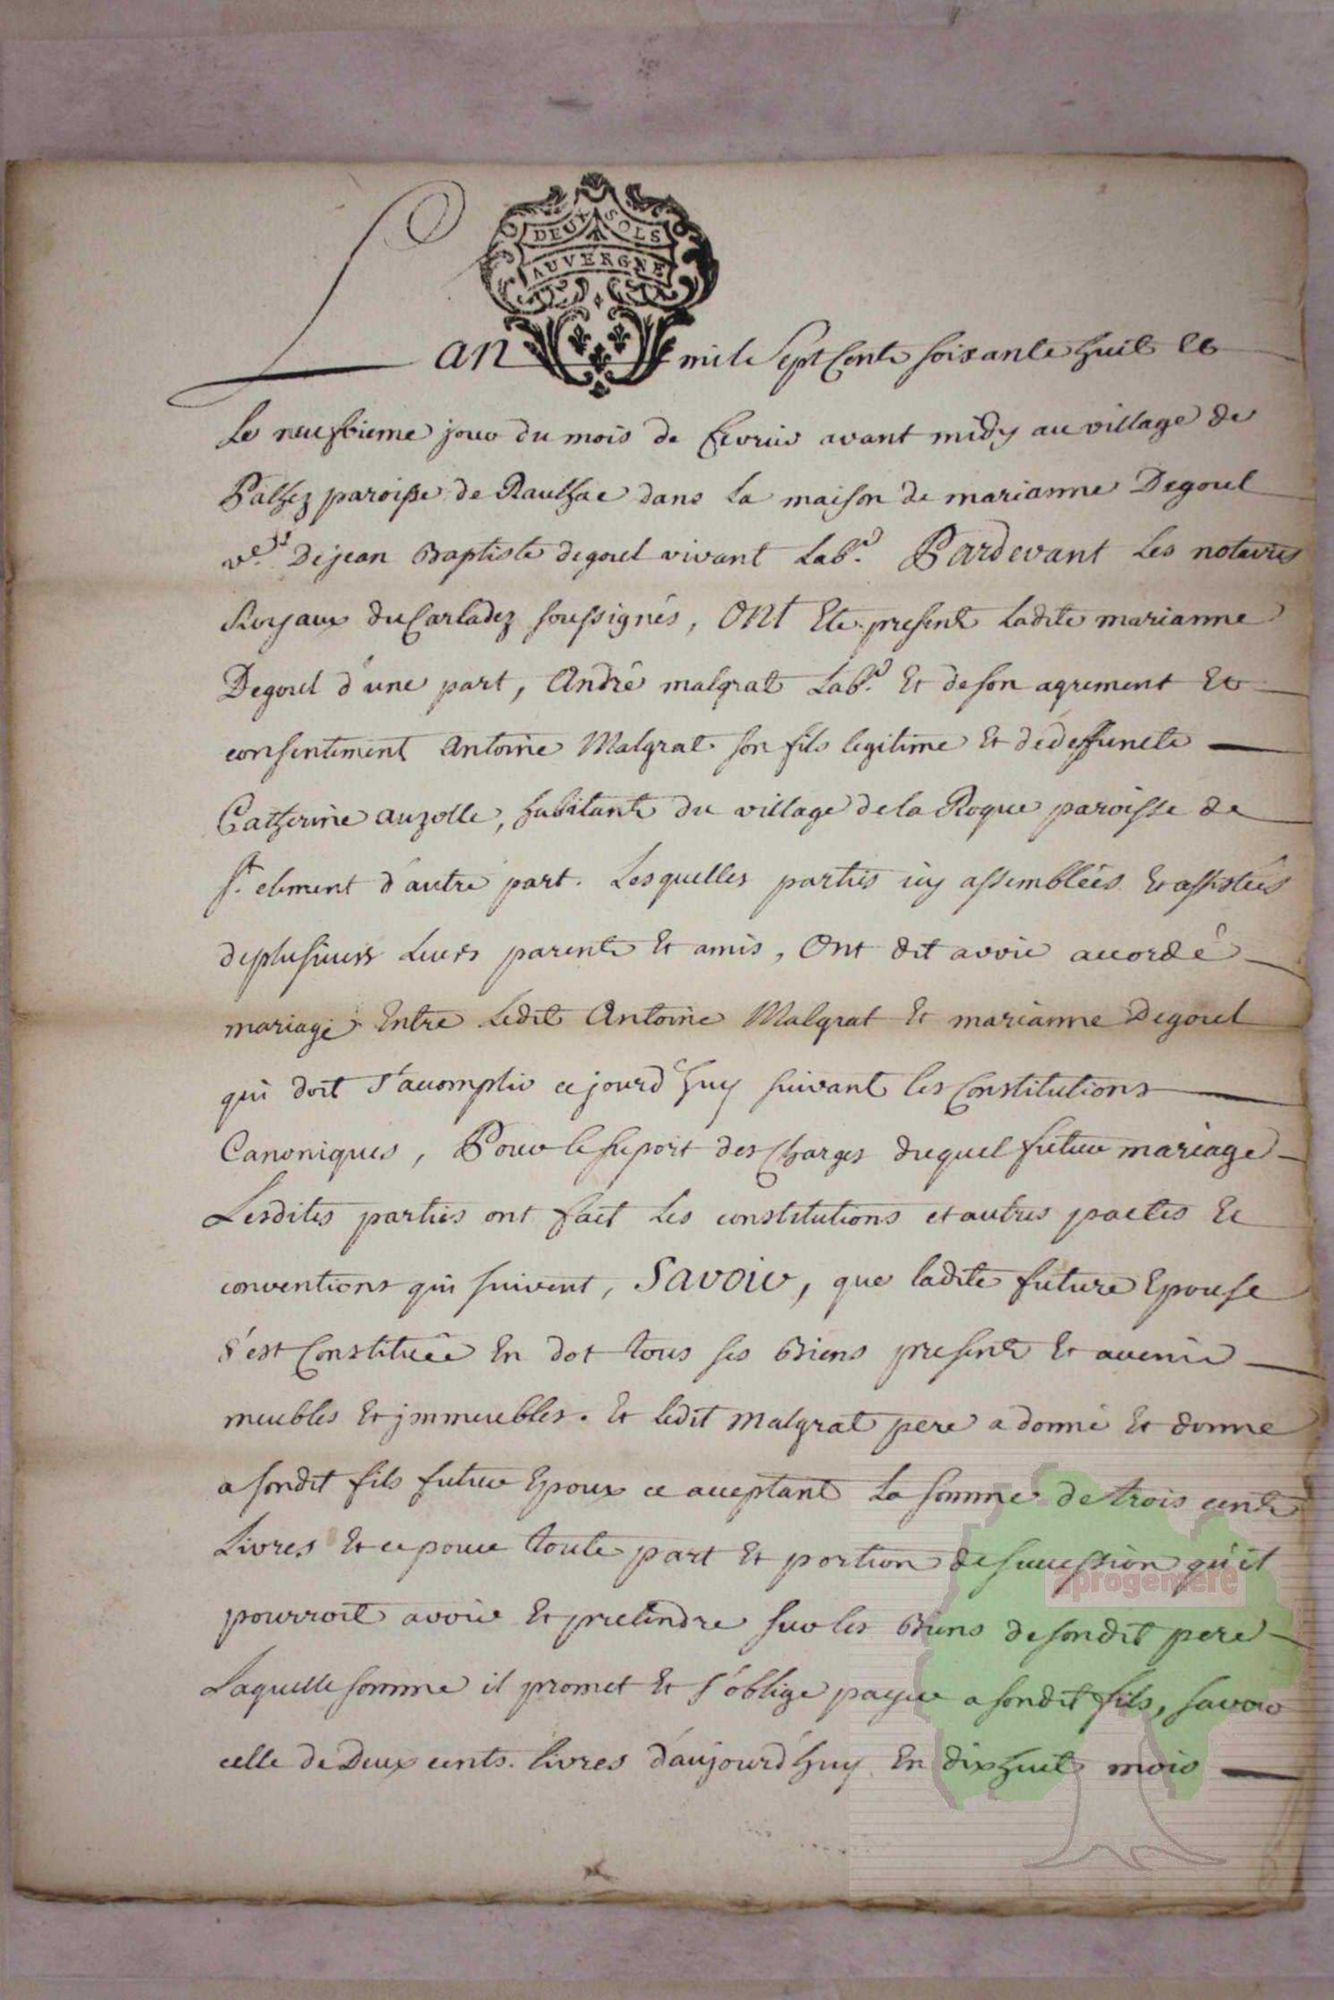 DEUX SOLS
AUVERGNE
Lan mile Sept Cents soixante huit et
Le neufvieme jour du mois de fevrier avant midy au village de
Palhez paroisse de Raulhac dans la maison de marianne Degoul
v.e Dejean Baptiste degoul vivant Lab.r Pardevant Les notaires
Royaux du Carladez soussignés, ONt Ete presents Ladite marianne
Degoul d'une part, André malgrat Lab.r Et deson agrement Et
consentement Antoine Malgrat son fils legitime Et dedeffuncte
Catherine auzolle, habitants du village dela Roque paroisse de
s.t clement d'autre part. Lesquelles parties icy assemblées Et assistées
deplusieurs Leurs parents Et amis, Ont dit avoir accordé
mariage Entre Ledit Antoine Malgrat Et marianne Degoul
qui doit s'acomplir cejourd'huy suivant les Constitutions
Canoniques, Pour le suport des Charges duquel futur mariage
Lesdites parties ont fait Les constitutions et autres pactes Et
conventions qui suivent, Savoir, que ladite future Epouse
s'est Constituée En dot tous ses Biens presents Et avenir
meubles Et jmmeubles. Et ledit Malgrat pere a donné Et donne
a sondit fils futur Epoux ce acceptant La somme de trois cents
Livres Et ce pour toute part Et portion de succession qu'il
pourroit avoir Et pretendre sur les Biens de sondit pere
Laquelle somme il promet Et s'oblige payer a sondit fils, savoir
celle de Deux cents livres d'aujourd'huy En dix huit mois
aprogemere